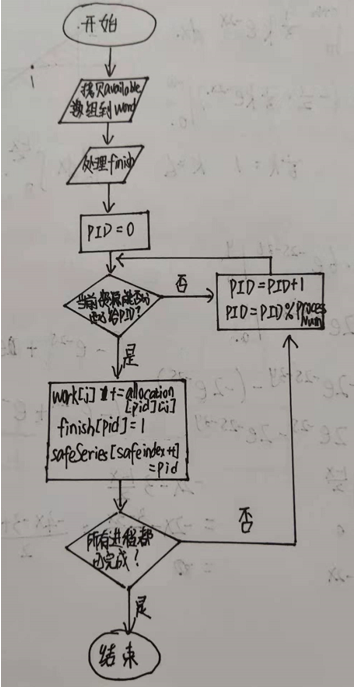 开始
拷贝available
数组到word
处理finish
PID=0
当前资源能否分
配给PID?
否
PID=PID+1
PID=PID%Process
Num
是
work[i] += allocation
[pid][i]
finish[pid]=1
safeSeries[safeindex++]
=pid
所有进程都
已完成?
否
是
结束